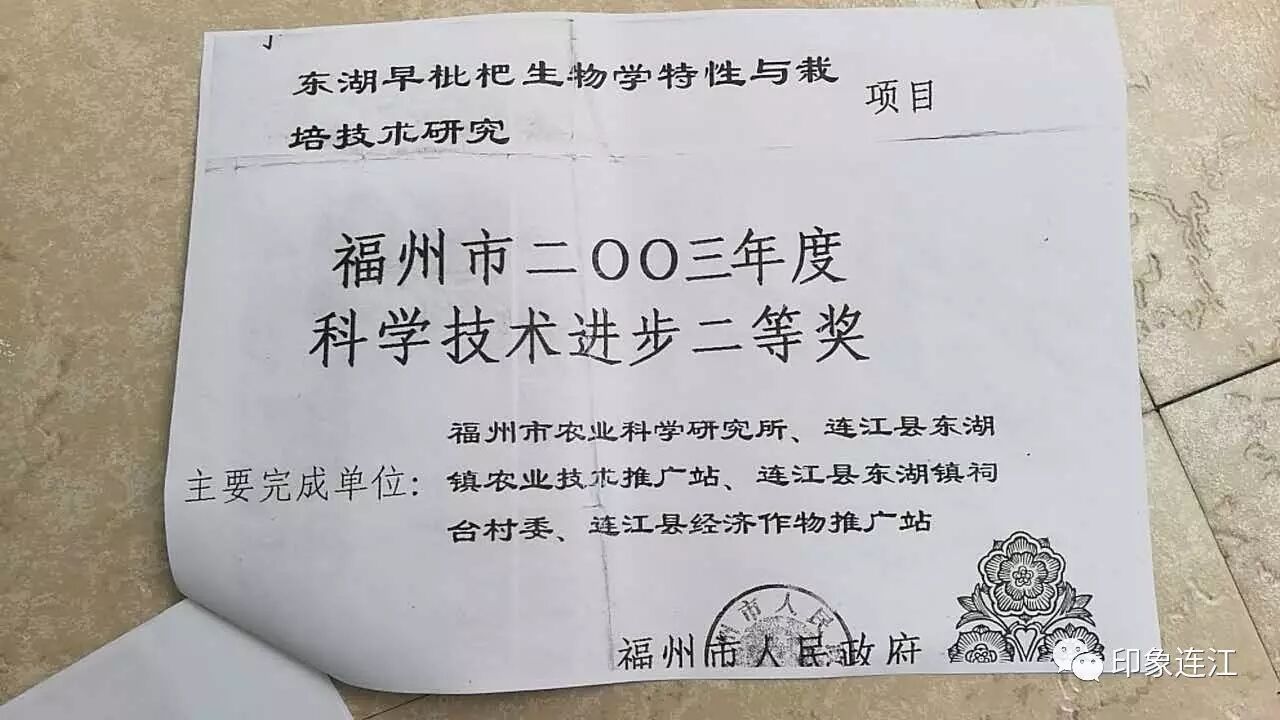 东湖早枇杷生物学特性与栽
培技术研究
项目
福州市二〇〇三年度
科学技术进步二等奖
主要完成单位：
福州市农业科学研究所、连江县东湖
镇农业技术推广站、连江县东湖镇祠
台村委、连江县经济作物推广站
州市人民
福州市人民政府
印象连江